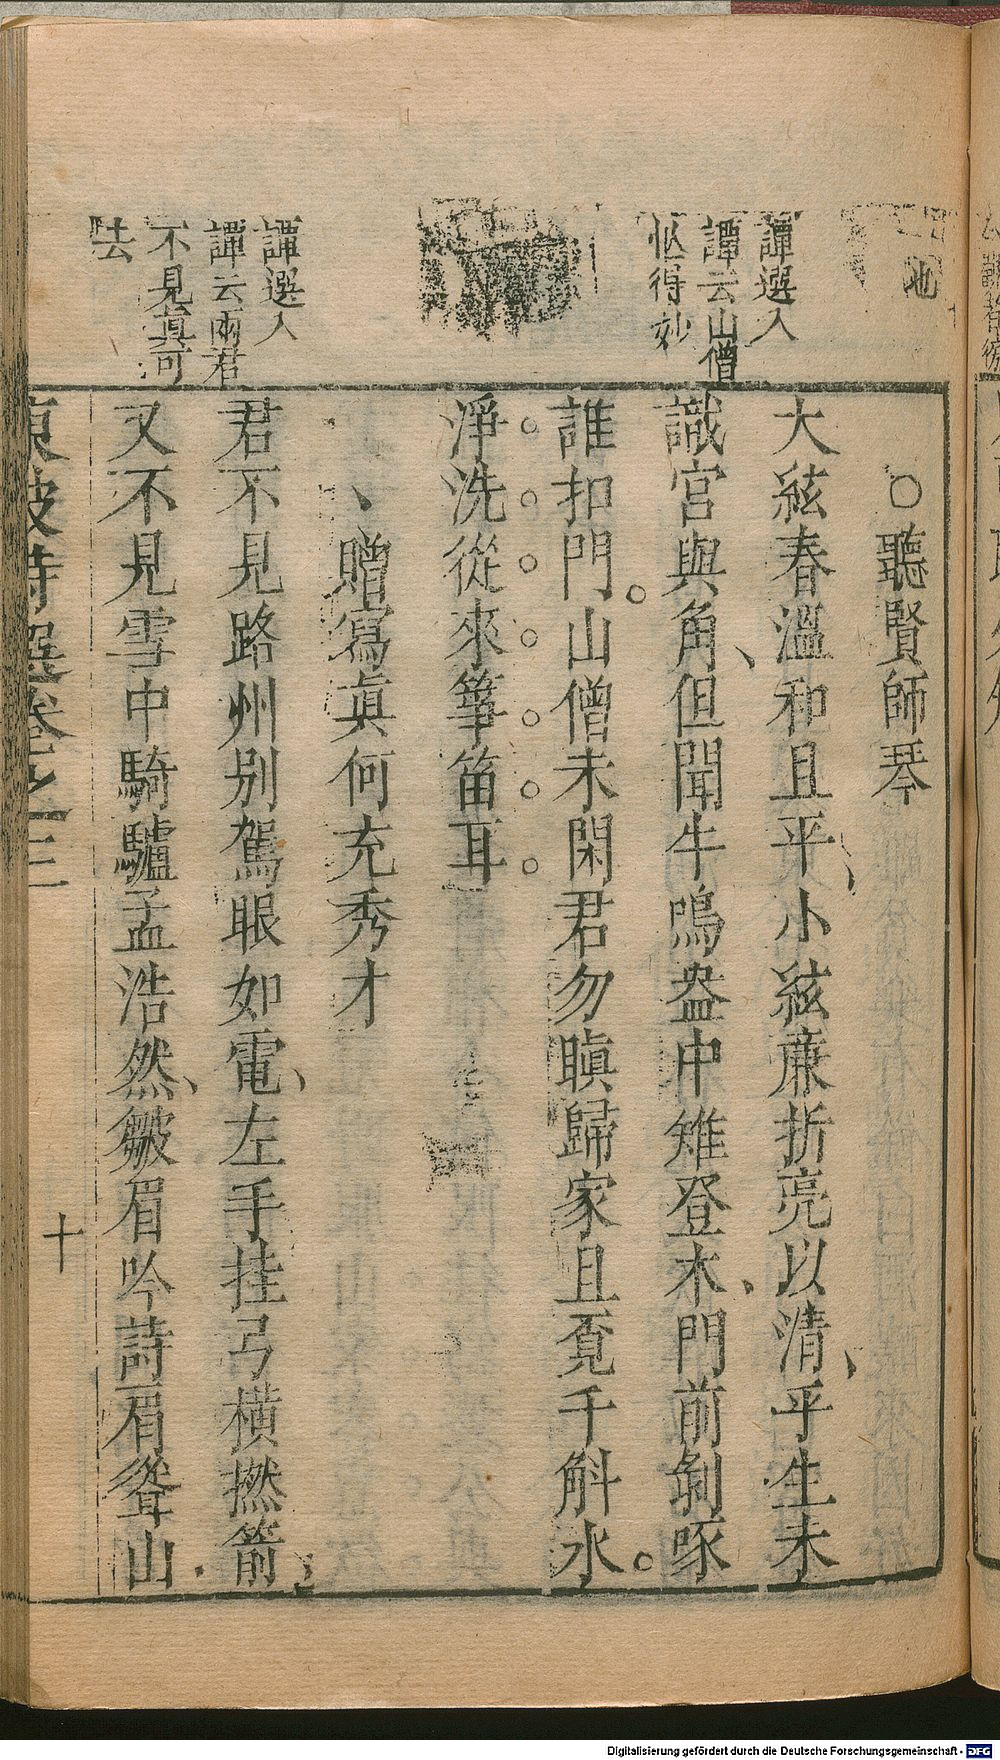 地
譚選入
譚云山僧
忙得妙
譚選入
譚云兩君
不見真可
去
○聽賢師琴
大絃春溫和且平小絃亷折亮以清平生未
識宮與角但聞牛鳴盎中雉登木門前剝啄
誰扣門山僧未閑君勿瞋歸家且覔千斛水
淨洗從來箏笛耳
贈寫眞何充秀才
君不見路州别駕眼如電左手挂弓横撚箭
又不見雪中騎驢孟浩然皺眉吟詩肩聳山
東坡詩選卷之三
十
Digitalisierung gefördert durch die Deutsche Forschungsgemeinschaft - DFG